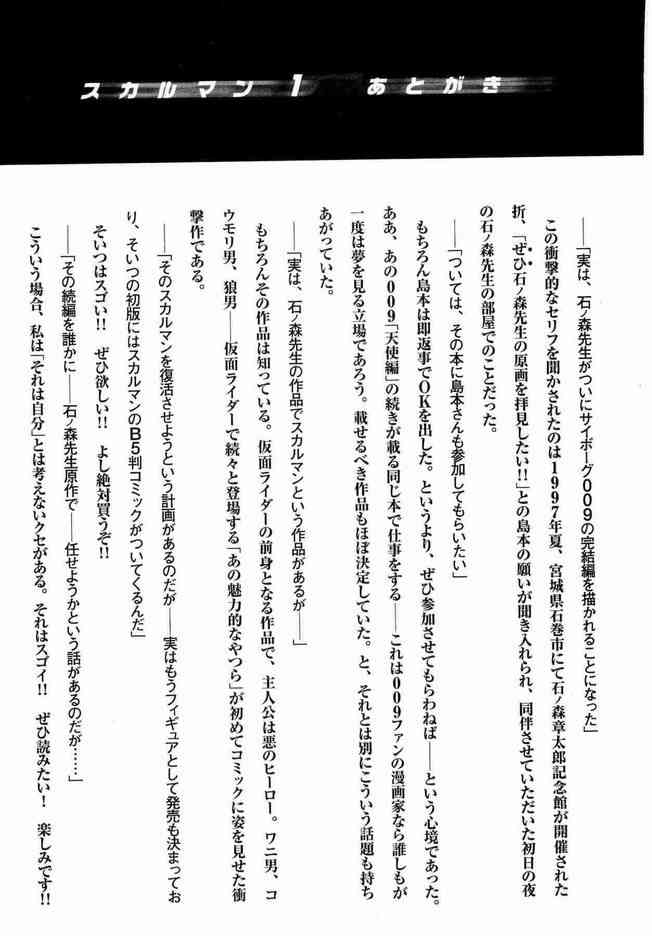 スカルマン 1 あとがき
――「実は、石ノ森先生がついにサイボーグ009の完結編を描かれることになった」
この衝撃的なセリフを聞かされたのは1997年夏、宮城県石巻市にて石ノ森章太郎記念館が開催された
折、「ぜひ石ノ森先生の原画を拝見したい!!」との島本の願いが聞き入れられ、同伴させていただいた初日の夜
の石ノ森先生の部屋でのことだった。
――「ついては、その本に島本さんも参加してもらいたい」
もちろん島本は即返事でOKを出した。というより、ぜひ参加させてもらわねば――という心境であった。
ああ、あの009「天使編」の続きが載る同じ本で仕事をする――これは009ファンの漫画家なら誰しもが
一度は夢を見る立場であろう。載せるべき作品もほぼ決定していた。と、それとは別にこういう話題も持ち
あがっていた。
――「実は、石ノ森先生の作品でスカルマンという作品があるが――」
もちろんその作品は知っている。仮面ライダーの前身となる作品で、主人公は悪のヒーロー。ワニ男、コ
ウモリ男、狼男――仮面ライダーで続々と登場する「あの魅力的なやつら」が初めてコミックに姿を見せた衝
撃作である。
――「そのスカルマンを復活させようという計画があるのだが――実はもうフィギュアとして発売も決まってお
り、そいつの初版にはスカルマンのB5判コミックがついてくるんだ」
そいつはスゴい!! ぜひ欲しい!! よし絶対買うぞ!!
――「その続編を誰かに――石ノ森先生原作で――任せようかという話があるのだが……」
こういう場合、私は「それは自分」とは考えないクセがある。それはスゴイ!! ぜひ読みたい! 楽しみです!!